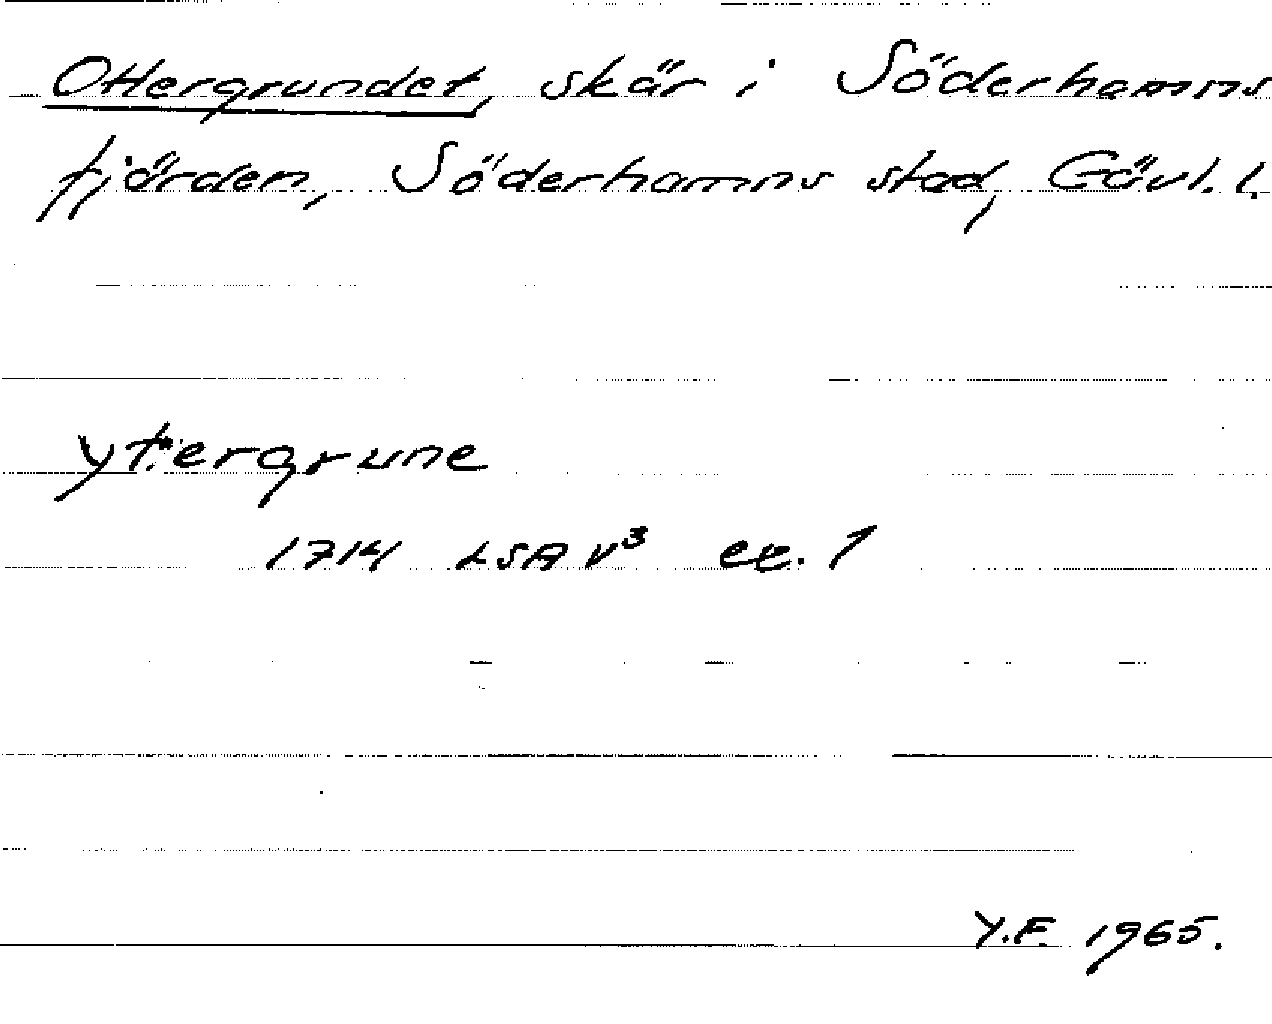 Ottergrundet, skär i Söderhamns
fjärden, Söderhamns stad, Gävl. l.
yttergrune
1714 LSA V³ ee. 1
Y.F. 1965.